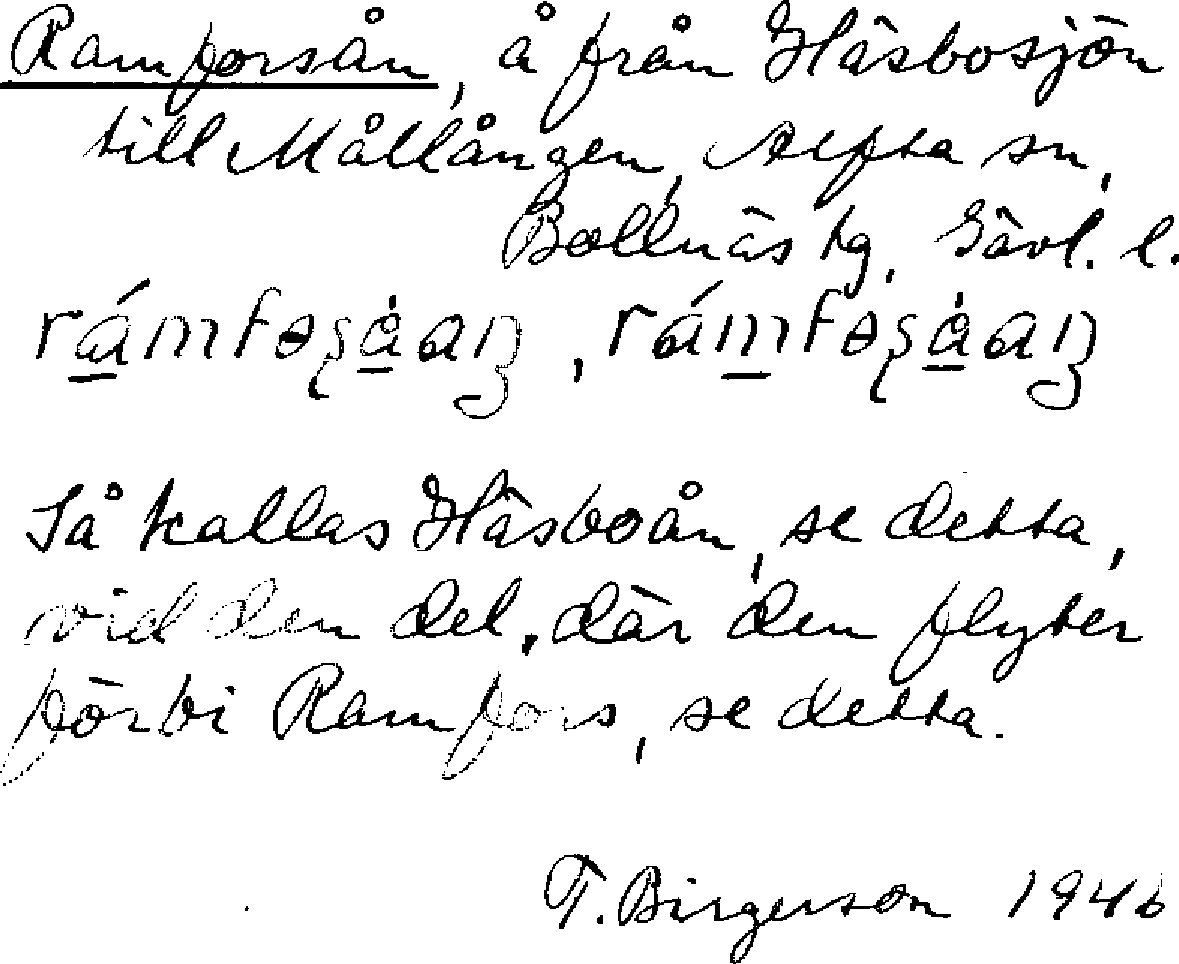 Ramforsån, å från Häsbosjön
till Mållången, Alfta sn,
Bollnäs tg, Gävl. l.
Så kallas Häsboån, se detta,
vid den del, där den flyter
förbi Ramfors, se detta.
T. Birgerson 1946